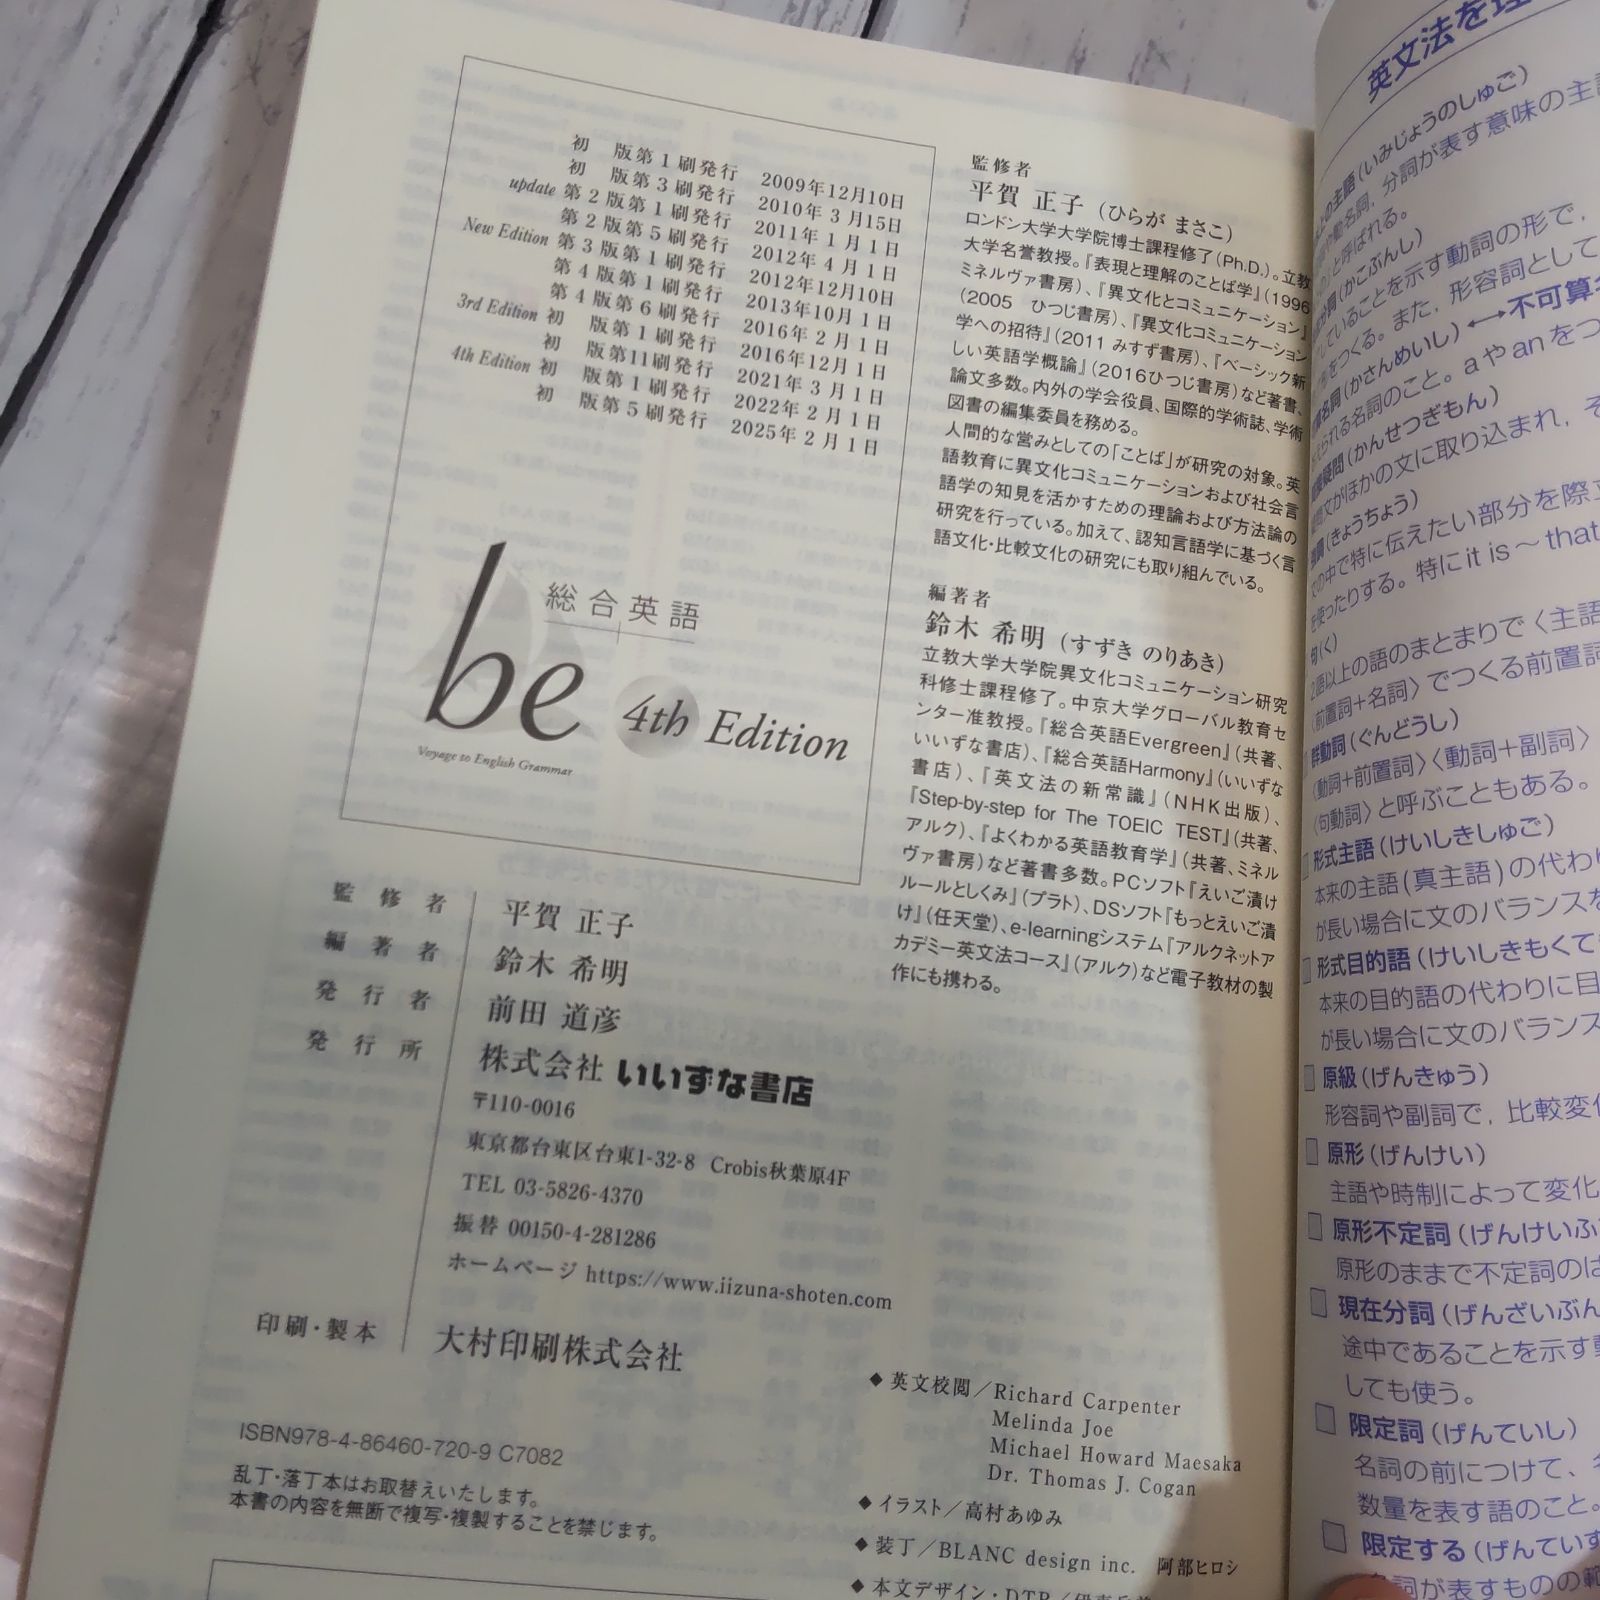 初 版第1刷発行 2009年12月10日
初 版第3刷発行 2010年 3月15日
update 第2版第1刷発行 2011年 1月 1日
第2版第5刷発行 2012年 4月 1日
New Edition 第3版第1刷発行 2012年12月10日
第4版第1刷発行 2013年10月 1日
第4版第6刷発行 2016年 2月 1日
3rd Edition 初 版第1刷発行 2016年12月 1日
初 版第11刷発行 2021年 3月 1日
4th Edition 初 版第1刷発行 2022年 2月 1日
初 版第5刷発行 2025年 2月 1日
総合英語
be 4th Edition
Voyage to English Grammar
監修者 平賀 正子
編著者 鈴木 希明
発行者 前田 道彦
発行所 株式会社 いいずな書店
〒110-0016
東京都台東区台東1-32-8 Crobis秋葉原4F
TEL 03-5826-4370
振替 00150-4-281286
ホームページ https://www.iizuna-shoten.com
印刷・製本 大村印刷株式会社
ISBN978-4-86460-720-9 C7082
乱丁・落丁本はお取替えいたします。
本書の内容を無断で複写・複製することを禁じます。
監修者
平賀 正子(ひらが まさこ)
ロンドン大学大学院博士課程修了(Ph.D.)。立教
大学名誉教授。『表現と理解のことば学』(1996
ミネルヴァ書房)、『異文化とコミュニケーション』
(2005 ひつじ書房)、『異文化コミュニケーション
学への招待』(2011 みすず書房)、『ベーシック新
しい英語学概論』(2016ひつじ書房)など著書、
論文多数。内外の学会役員、国際的学術誌、学術
図書の編集委員を務める。
人間的な営みとしての「ことば」が研究の対象。英
語教育に異文化コミュニケーションおよび社会言
語学の知見を活かすための理論および方法論の
研究を行っている。加えて、認知言語学に基づく言
語文化・比較文化の研究にも取り組んでいる。
編著者
鈴木 希明(すずき のりあき)
立教大学大学院異文化コミュニケーション研究
科修士課程修了。中京大学グローバル教育セ
ンター准教授。『総合英語Evergreen』(共著、
いいずな書店)、『総合英語Harmony』(いいずな
書店)、『英文法の新常識』(NHK出版)、
『Step-by-step for The TOEIC TEST』(共著、
アルク)、『よくわかる英語教育学』(共著、ミネル
ヴァ書房)など著書多数。PCソフト『えいご漬け
ルールとしくみ』(プラト)、DSソフト『もっとえいご漬
け』(任天堂)、e-learningシステム『アルクネットア
カデミー英文法コース』(アルク)など電子教材の製
作にも携わる。
◆英文校閲/Richard Carpenter
Melinda Joe
Michael Howard Maesaka
Dr. Thomas J. Cogan
◆イラスト/高村あゆみ
◆装丁/BLANC design inc. 阿部ヒロシ
◆本文デザイン・DTP/
英文法を理
上の主語(いみじょうのしゅご)
や動名詞,分詞が表す意味の主語
と呼ばれる。
分詞(かこぶんし)
していることを示す動詞の形で,
をつくる。また,形容詞として
名詞(かさんめいし)⟷不可算名
えられる名詞のこと。aやanをつ
接疑問(かんせつぎもん)
文がほかの文に取り込まれ,そ
調(きょうちょう)
文の中で特に伝えたい部分を際立
を使ったりする。特にit is〜that
句(く)
2語以上の語のまとまりで〈主語
〈前置詞+名詞〉でつくる前置詞
群動詞(ぐんどうし)
〈動詞+前置詞〉〈動詞+副詞〉
〈句動詞〉と呼ぶこともある。
形式主語(けいしきしゅご)
本来の主語(真主語)の代わり
が長い場合に文のバランスを
形式目的語(けいしきもくて
本来の目的語の代わりに目
が長い場合に文のバランス
原級(げんきゅう)
形容詞や副詞で,比較変化
原形(げんけい)
主語や時制によって変化
原形不定詞(げんけいふ
原形のままで不定詞のは
現在分詞(げんざいぶん
途中であることを示す動
しても使う。
限定詞(げんていし)
名詞の前につけて、名
数量を表す語のこと。
限定する(げんていす
詞が表すものの範